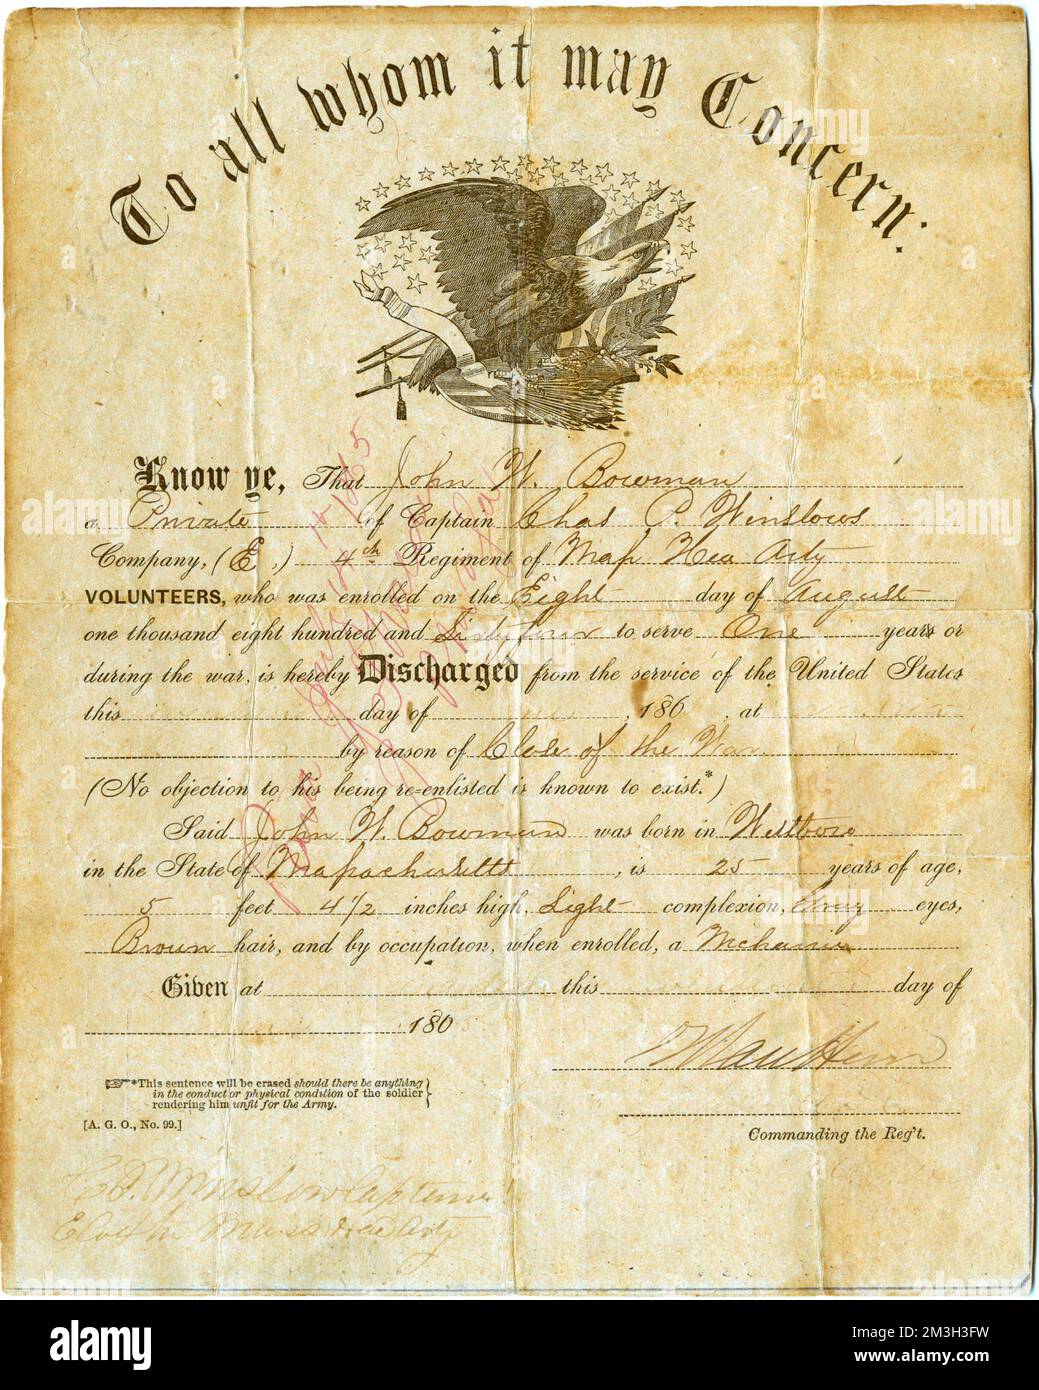 To all whom it may Concern:
Know ye, That John W. Bowman
a Private of Captain Chas P. Winslows
Company, (E,) 4th Regiment of Mass Hea Arty
VOLUNTEERS, who was enrolled on the Eight day of August
one thousand eight hundred and Sixty four to serve One years or
during the war, is hereby Discharged from the service of the United States
this day of , 186 , at
by reason of Close of the War
(No objection to his being re-enlisted is known to exist.*)
Said John W. Bowman was born in Westboro
in the State of Massachusetts , is 25 years of age,
5 feet 4 1/2 inches high, Light complexion, Gray eyes,
Brown hair, and by occupation, when enrolled, a Mechanic
Given at this day of
186
☞*This sentence will be erased should there be anything
in the conduct or physical condition of the soldier
rendering him unfit for the Army.
[A. G. O., No. 99.]
Commanding the Reg't.
C P Winslow Captain
E Co 4th Mass Hea Arty
1865
alamy
Image ID: 2M3H3FW
www.alamy.com